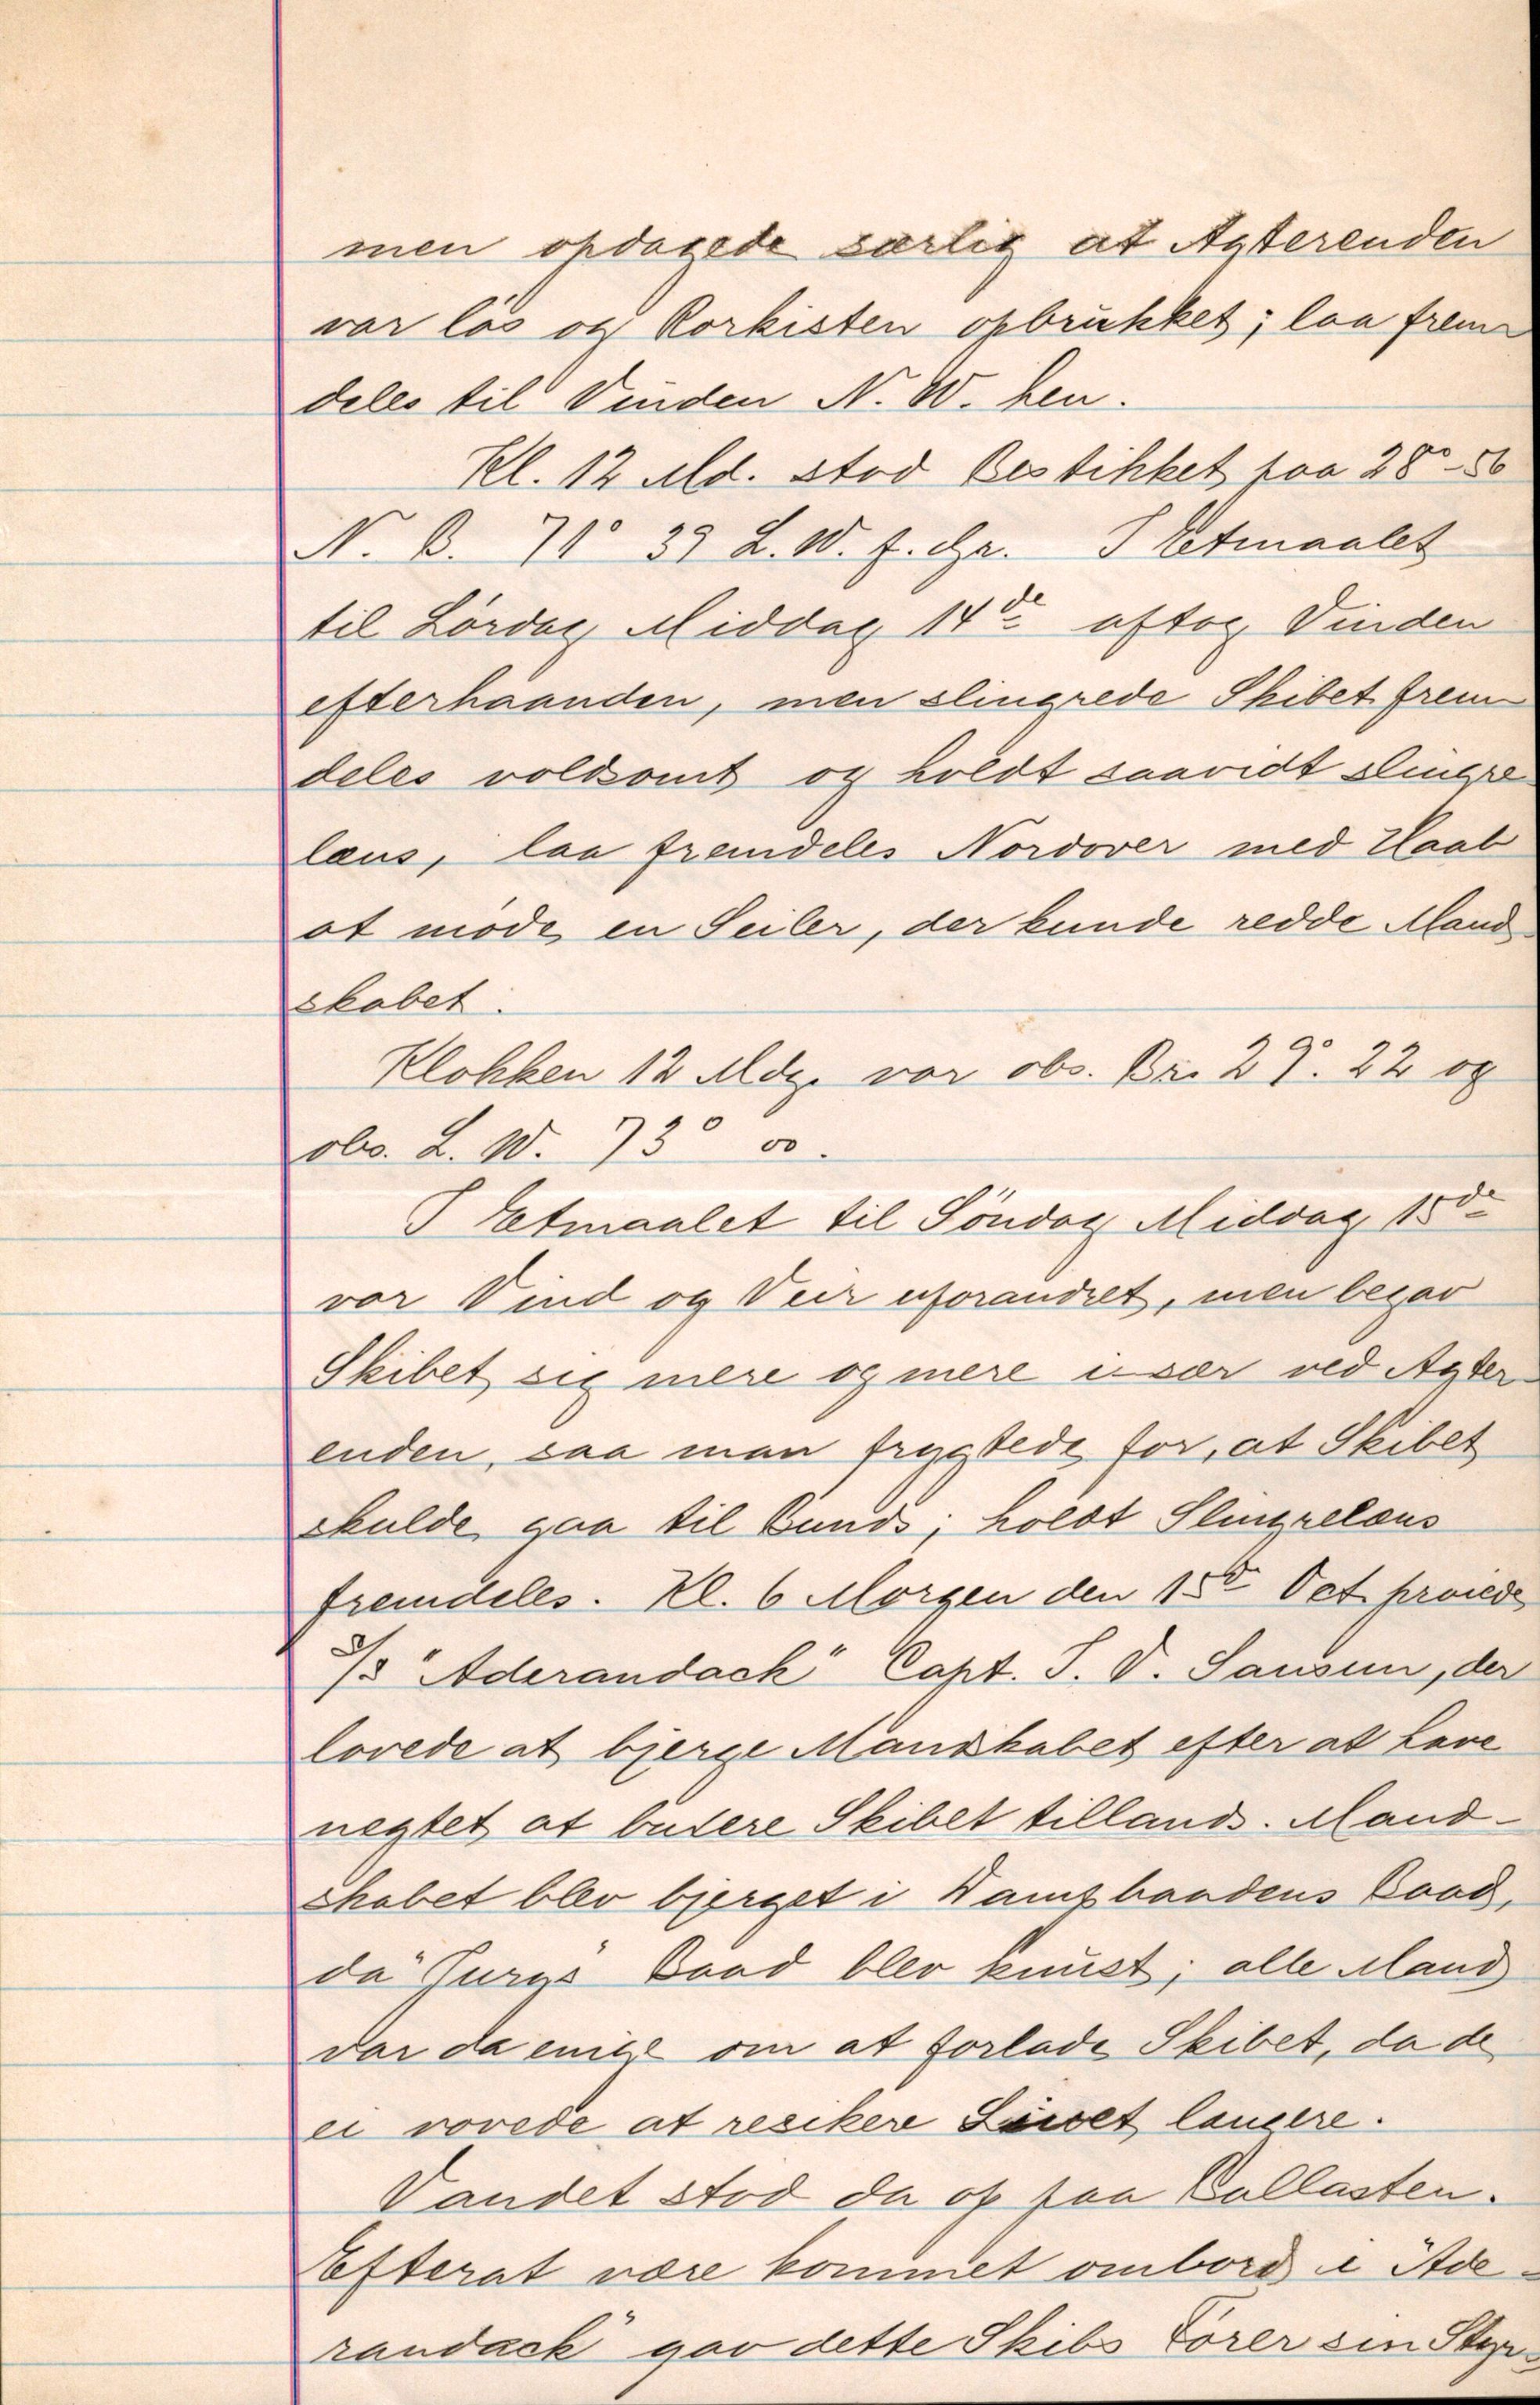 men opdagede særlig at Agterenden
var lós og Rorkisten opbrukket; laa frem
deles til Vinden N. W. hen.
Kl. 12 Md. stod Bestikket paa 28° - 56
N. B. 71° 39 L. W. f. Gr. I Etmaalet
til Lórdag Middag 14de aftog Vinden
efterhaanden, men slingrede Skibet frem
deles voldsomt og holdt saavidt slingre
læns, laa fremdeles Nordover med Haab
at móde en Seiler, der kunde redde Mand
skabet.
Klokken 12 Mdg. var obs. Br. 29°. 22 og
obs. L. W. 73° 00.
I Etmaalet til Söndag Middag 15de
var Vind og Veir uforandret, men begav
Skibet sig mere og mere især ved Agter-
enden, saa man frygtede for, at Skibet
skulde gaa til Bunds; holdt Slingrelæns
fremdeles. Kl. 6 Morgen den 15de Oct. praiede
S/S "Aderandack" Capt. S. V. Sansum, der
lovede at bjerge Mandskabet efter at have
negtet at buxere Skibet tillands. Mand-
skabet blev bjerget i Dampbaadens Baad,
da "Furys" Baad blev knust; alle Mand
var da enige om at forlade Skibet, da de
ei vovede at resikere Livet længere.
Vandet stod da op paa Ballasten.
Efterat være kommet ombord i "Ade-
randack" gav dette Skibs Fórer sin Styr-